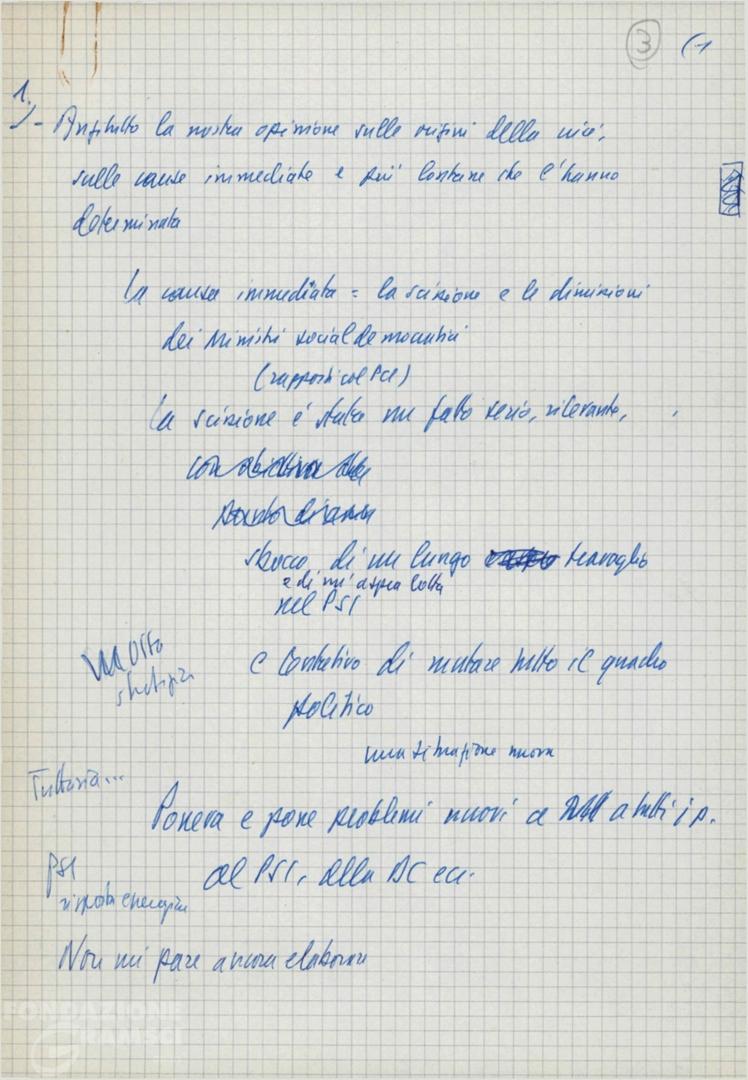 3 (1
1.
- Anzitutto la nostra opinione sulle origini della crisi,
sulle cause immediate e più lontane che l'hanno
determinata
La causa immediata = la scissione e le dimissioni
dei Ministri socialdemocratici
(rapporti col PCI)
La scissione è stata un fatto serio, rilevante,
sbocco di un lungo travaglio
e di un'aspra lotta
nel PSI
e tentativo di mutare tutto il quadro
politico
una situazione nuova
Tuttavia...
Poneva e pone problemi nuovi a tutti i p.
al PSI, alla DC ecc.
PSI
risposta energica
Non mi pare ancora
FONDAZIONE
GRAMSCI